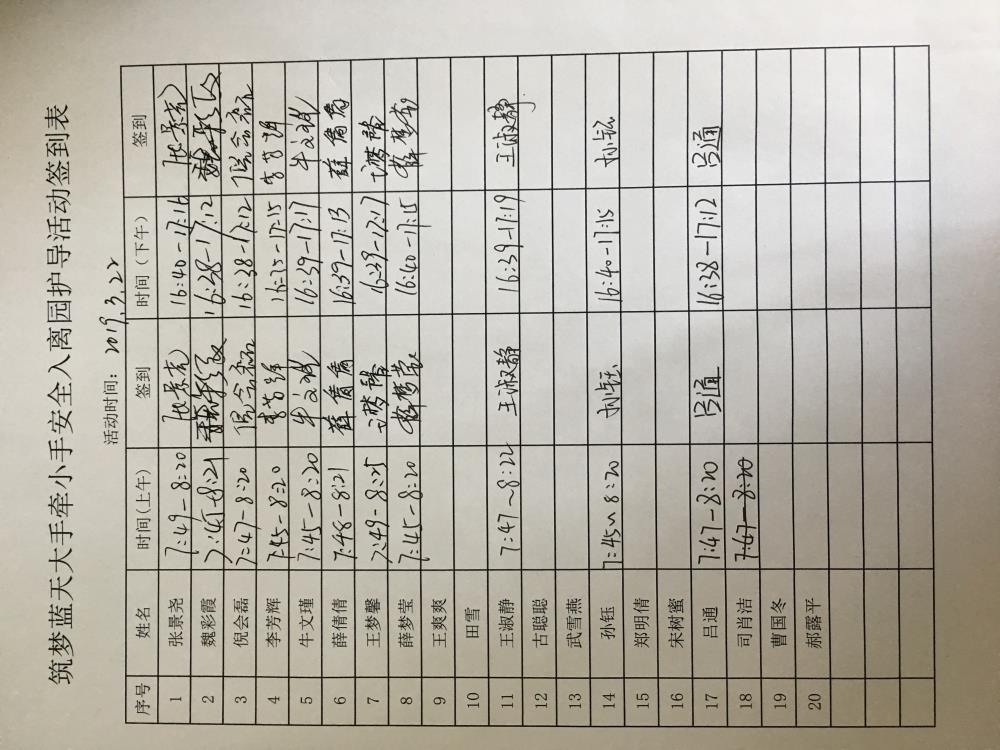 筑梦蓝天大手牵小手安全入离园护导活动签到表
活动时间：2019.3.22
序号 姓名 时间(上午) 签到 时间（下午） 签到
1 张景尧 7:49-8:20 张景尧 16:40-17:16 张景尧
2 魏彩霞 7:45-8:21 魏彩霞 16:38-17:12 魏彩霞
3 倪会磊 7:47-8:20 倪会磊 16:38-17:12 倪会磊
4 李芳辉 7:45-8:20 李芳辉 16:35-17:15 李芳辉
5 牛文瑾 7:45-8:20 牛文瑾 16:39-17:17 牛文瑾
6 薛倩倩 7:48-8:21 薛倩倩 16:39-17:13 薛倩倩
7 王梦馨 7:49-8:25 王梦馨 16:39-17:17 王梦馨
8 薛梦莹 7:45-8:20 薛梦莹 16:40-17:15 薛梦莹
9 王爽爽
10 田雪
11 王淑静 7:47~8:22 王淑静 16:39-17:19 王淑静
12 古聪聪
13 武雪燕
14 孙钰 7:45~8:20 孙钰 16:40-17:15 孙钰
15 郑明倩
16 宋树蜜
17 吕通 7:47-8:20 吕通 16:38-17:12 吕通
18 司肖洁 7:47-8:20
19 曹国冬
20 郝露平